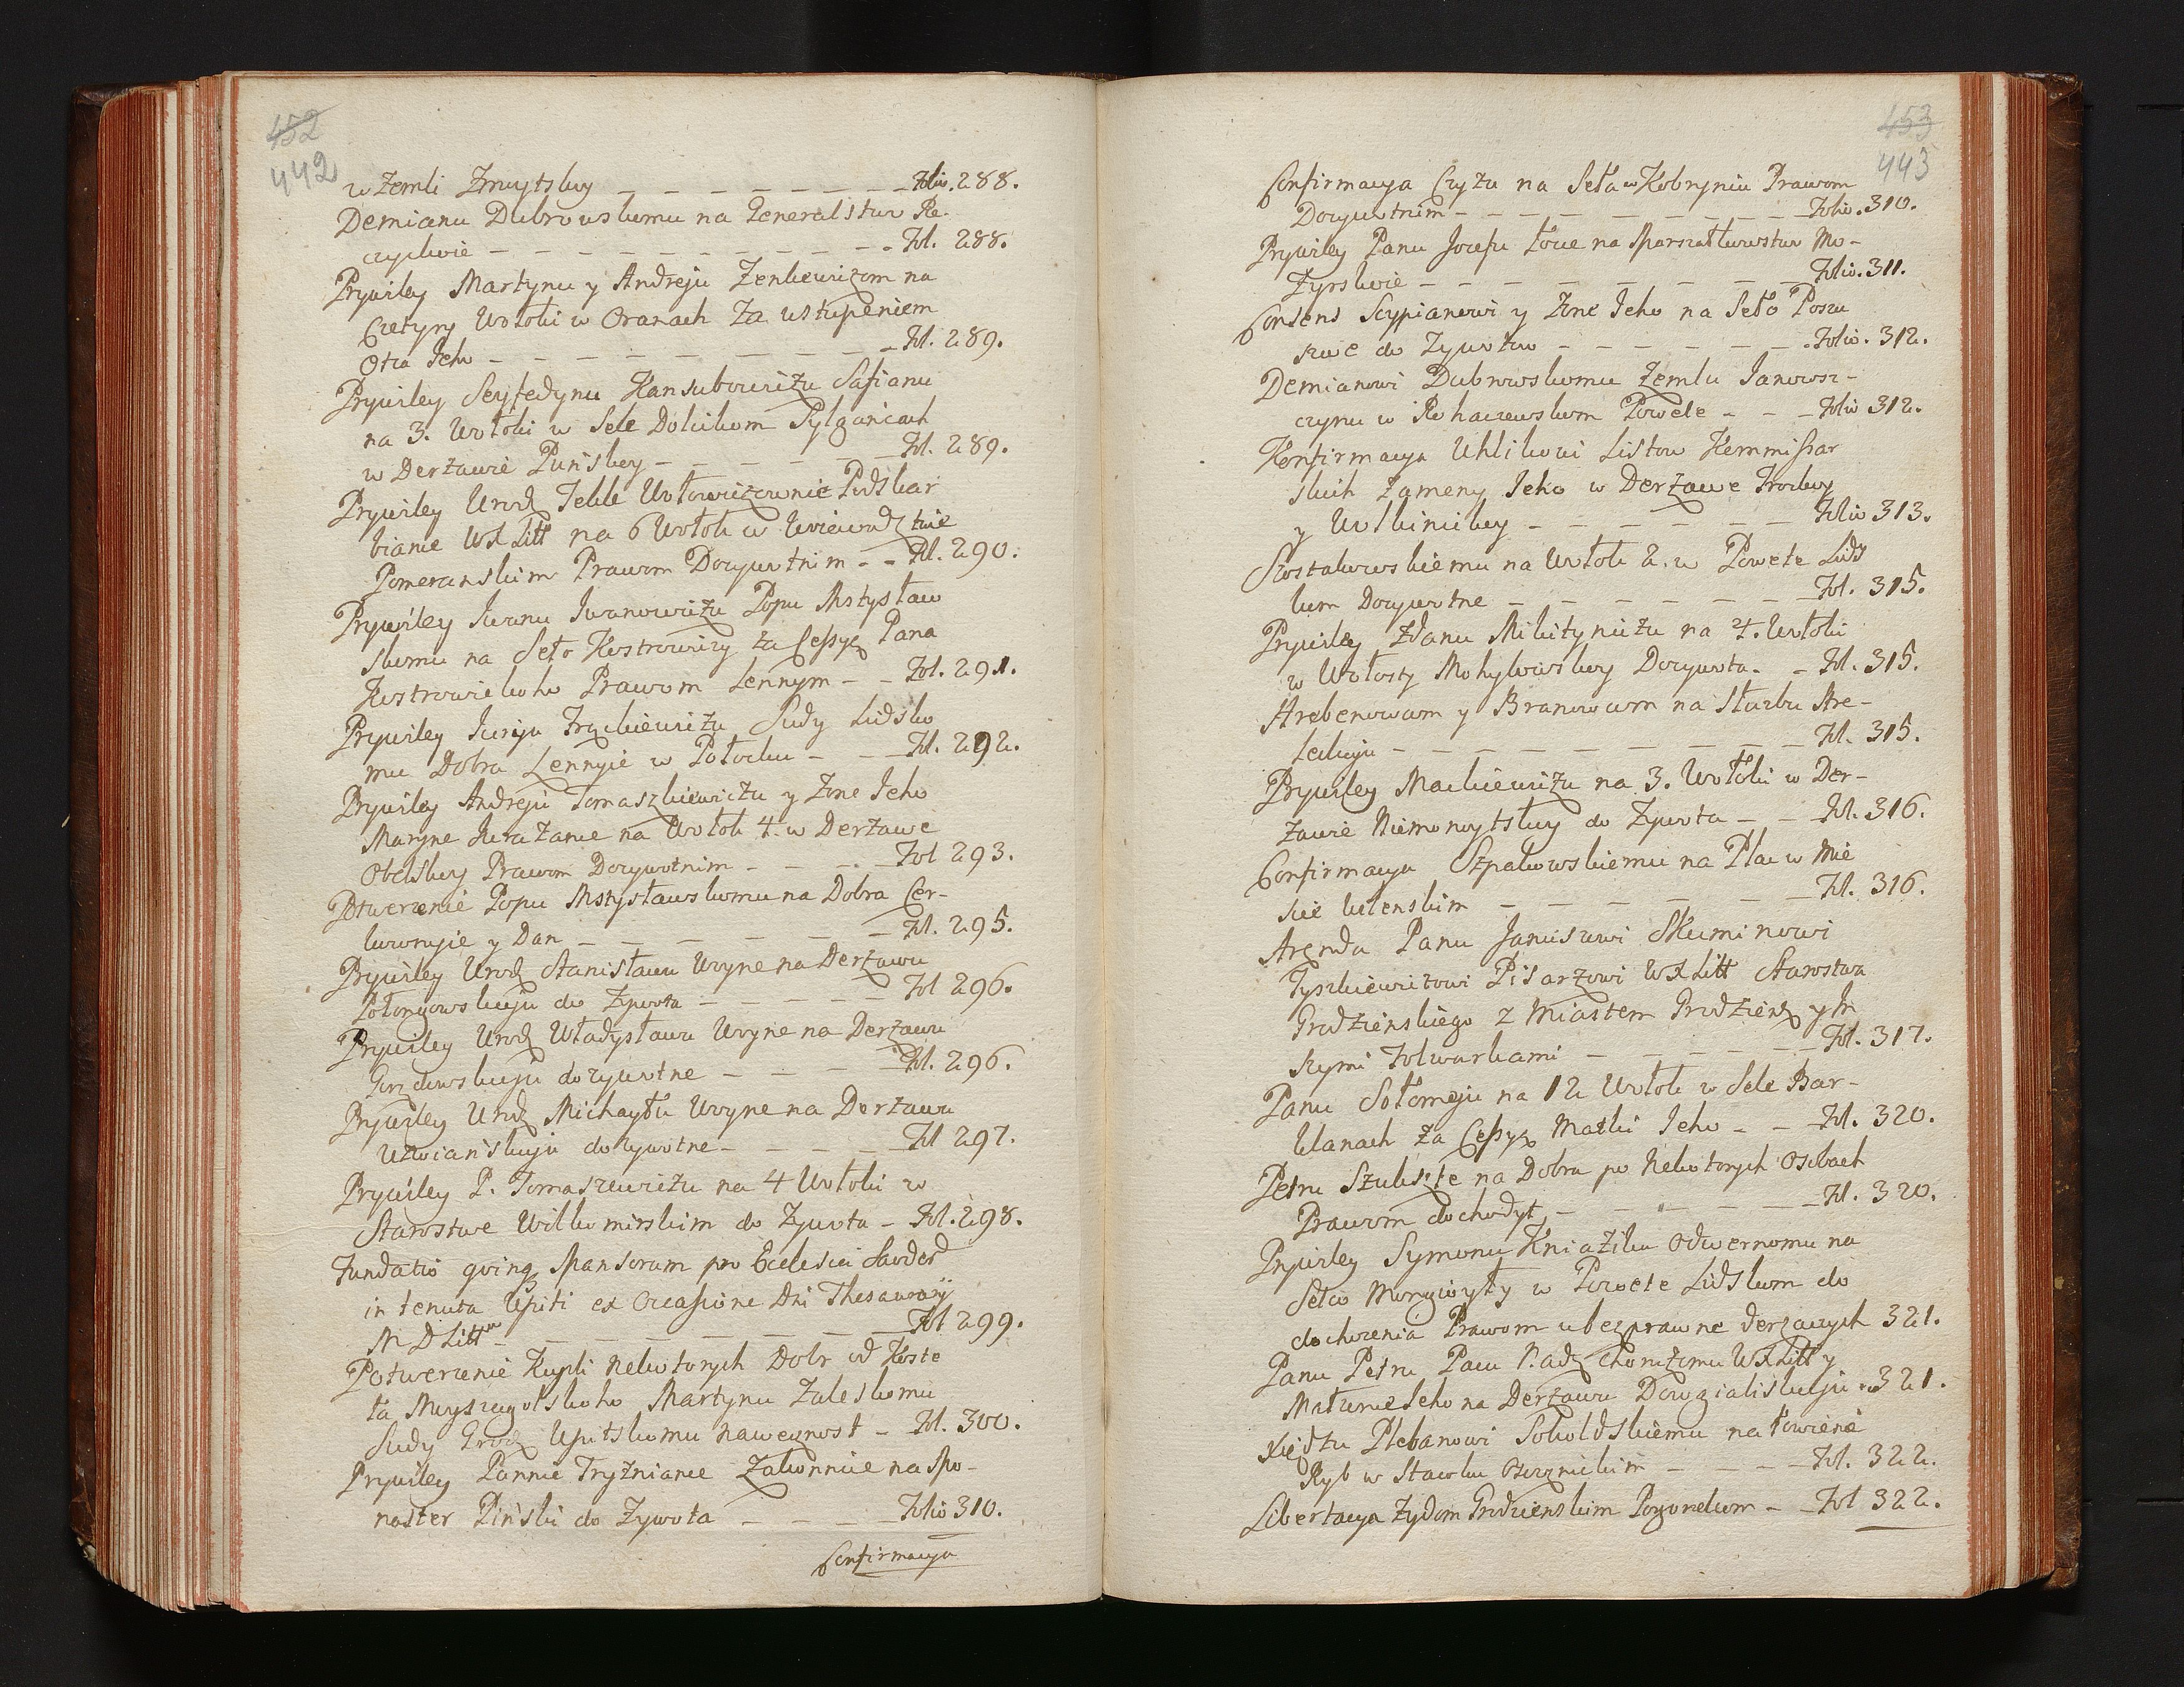 452
442
w Zemli Zmuytskoy - - - - - - - - Folio. 288.
Demianu Dubrowskomu na Generalstwo Re-
czyckoie - - - - - - - - - Fol. 288.
Prywiley Martynu y Andreju Zenkewiczom na
Czetyry Wołoki w Oranach Za ustupeniem
Otca Jeho - - - - - - - - - Fol. 289.
Prywiley Seyfedynu Kansubowiczu Safianu
na 3. Wołoki w Sele
w Derżawie Punskoy - - - - - - Fol. 289.
Prywiley Urodz Tekle Wołowiczownie Podskar
biance WXLitt na 6 Wołok w Woiewodztwie
Pomeranskim Prawom Dożywotnim - - Fol. 290.
Prywiley Iwanu Iwanowiczu Popu Mstysław
skomu na Seło Kostrowicy za Cessyą Pana
Kostrowickoho Prawom Lennym - - Fol. 291.
Prywiley Jurju Frąckiewiczu Sudy Lidsko
mu Dobra Lennyie w Połocku - - Fol. 292.
Prywiley Andreju Tomaszkiewiczu y Żone Jeho
Maryne Jurażance na Wołok 4. w Derżawe
Obelskoy Prawom Dożywotnim - - - - Fol 293.
Potwerżenie Popu Mstysławskomu na Dobra Cer-
kownyie y Dan - - - - - - - Fol. 295.
Prywiley Urodz Stanisławu Woyne na Derżawu
do Żywota - - - - - Fol 296.
Prywiley Urodz Władysławu Woyne na Derżawu
Gorżdowskuju dożywotne - - - - Fol. 296.
Prywiley Urodz Michayłu Woyne na Derżawu
Uzwianskuju dożywotne - - - - - Fol 297.
Prywiley P. Tomaszewiczu na 4 Wołoki w
Starostwe Wilkomirskim do Żywota - Fol. 298.
Fundatio Mansorum pro Ecclesia
in tenuta Upiti ex Occasione Dni Thesaurarij
M D Littw - - - - - - - Fol 299.
Potwerżenie Kupli Nekotorych Dobr od Koste
ła Martynu Zaleskomu
Sudy Grodz Upitskomu na wecznost - Fol. 300.
Prywiley Pannie Tryżniance Zakonnice na Mo-
naster Pinski do Żywota - - - - Folio 310.
Confirmacya
453
443
Confirmacya Czyżu na Seła w Kobryniu Prawom
Dożywotnim - - - - - - - - Folio. 310.
Prywiley Panu Jozefu Łowe na Marszałkowstwo Mo-
zyrskoie - - - - - - - - Folio. 311.
Consens Scypianowi y Żone Jeho na Seło Poszu
szwe do Żywotow - - - - - - - Folio. 312.
Demianowi Dubrowskomu Zemlu Janowsz-
czynu w Rohaczewskom Powete - - - Folio 312.
Konfirmacya Uhlikowi Listow Kommissar
skich Zameny Jeho w Derżawe Trockoy
y Wolkinickoy - - - - - - Folio 313.
Szostakowskiemu na Wołok 2. w Powete Lids
kom Dożywotne - - - - - - - Fol. 315.
Prywiley Zdanu Mikityniczu na 4. Wołoki
w Wołosty Mohylowskoy Dożywota - - Fol. 315.
Arebenowcom y Branowcom na Służbu Are-
leckuju - - - - - - - - - Fol. 315.
Prywiley Mackiewiczu na 3. Wołoki w Der-
żawie Niemonoytskoy do Żywota - - Fol. 316.
Confirmacya Szpakowskiemu na Plac w Mie
scie Wilenskim - - - - - - - Fol. 316.
Arenda Panu Januszowi Skuminowi
Tyszkiewiczowi Pisarzowi WXLitt Starostwa
Grodzienskiego z Miastem Grodzien y In
szymi Folwarkami - - - - - - Fol. 317.
Panu Sołomeju na 12 Wołok w Sele Bar-
klanach za Cessyą Matki Jeho - - Fol. 320.
Petru Szukszte na Dobra po Nekotorych Osobach
Prawom dochodyt - - - - - - - Fol. 320.
Prywiley Symonu Kniaziku Odwernomu na
Sełco w Powete Lidskom do
dochożenia Prawom u bezprawne derżaczych 321.
Panu Petru Pacu Nadz Chorużomu WXLitt y
Małżonce Jeho na Derżawu Dowgialiskuju - 321.
Xiędzu Plebanowi Sokoldskiemu na łowienie
Ryb w Stawku - - - - Fol. 322.
Libertacya Żydom Grodzienskim Pogorelcom - Fol 322.